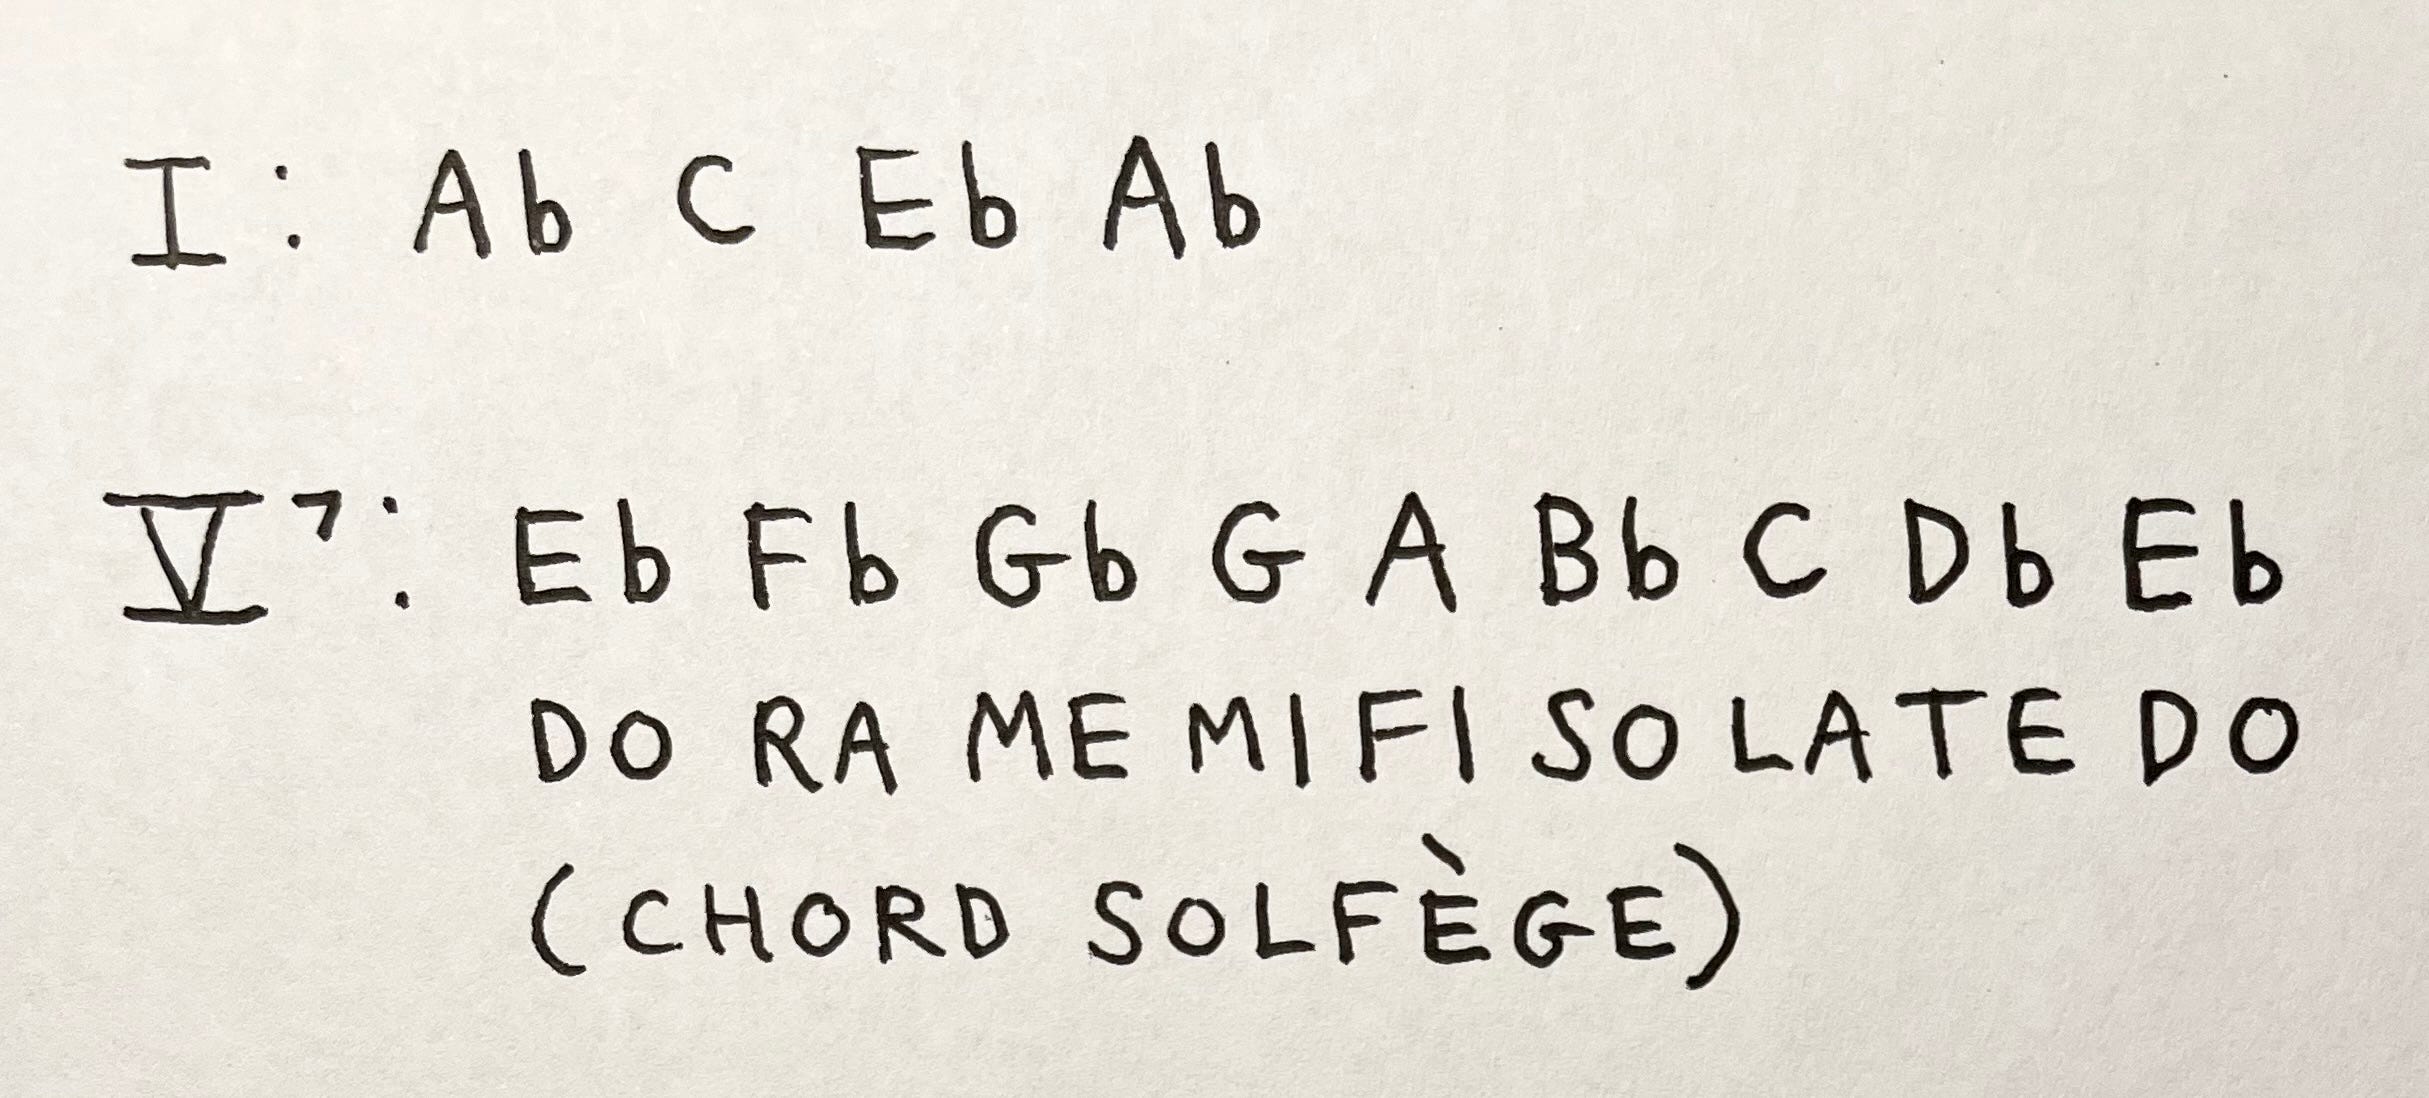 I: Ab C Eb Ab
V7: Eb Fb Gb G A Bb C Db Eb
DO RA ME MI FI SO LA TE DO
(CHORD SOLFÈGE)